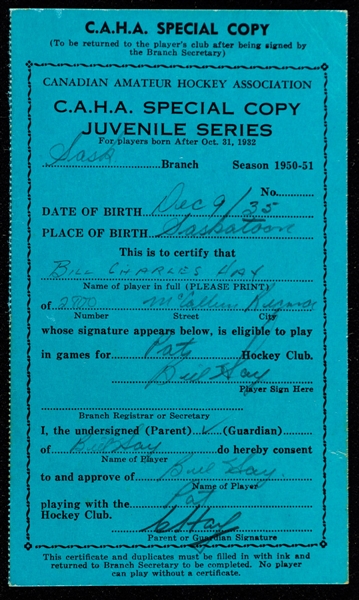 C.A.H.A. SPECIAL COPY
(To be returned to the player's club after being signed by
the Branch Secretary)
CANADIAN AMATEUR HOCKEY ASSOCIATION
C.A.H.A. SPECIAL COPY
JUVENILE SERIES
For players born After Oct. 31, 1932
Sask Branch Season 1950-51
No.
DATE OF BIRTH Dec 9/35
PLACE OF BIRTH Saskatoon
This is to certify that
BILL CHARLES HAY
Name of player in full (PLEASE PRINT)
of 2800 McCallum Regina
Number Street City
whose signature appears below, is eligible to play
in games for Pats Hockey Club.
Bill Hay
Player Sign Here
Branch Registrar or Secretary
I, the undersigned (Parent) ✓ (Guardian)
of Bill Hay do hereby consent
Name of Player
to and approve of Bill Hay
Name of Player
playing with the Pat
Hockey Club. C Hay
Parent or Guardian Signature
This certificate and duplicates must be filled in with ink and
returned to Branch Secretary to be completed. No player
can play without a certificate.